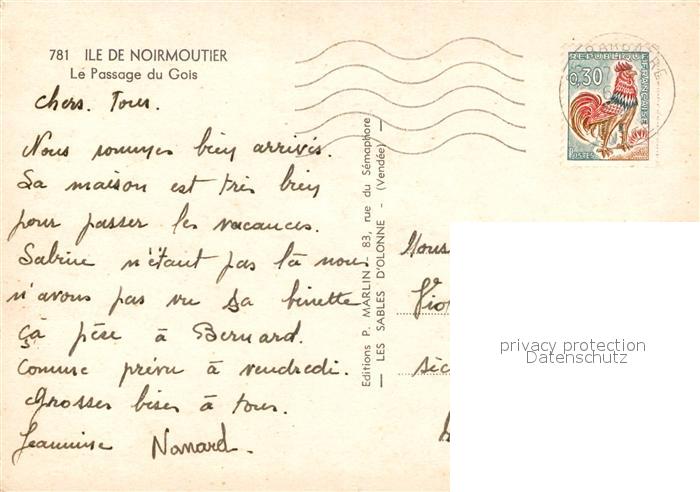 781 ILE DE NOIRMOUTIER
Le Passage du Gois
Chers. Tous.
Nous sommes bien arrivés.
La maison est très bien
pour passer les vacances.
Sabine n'étant pas là nous
n'avons pas vu sa binette
çà pèse à Bernard.
Comme prévu à vendredi.
Grosses bises à tous.
Jeannine Nanard.
Editions P. MARLIN - 83, rue du Sémaphore
— LES SABLES D'OLONNE - (Vendée) —
REPUBLIQUE FRANÇAISE
0,30
POSTES
privacy protection
Datenschutz